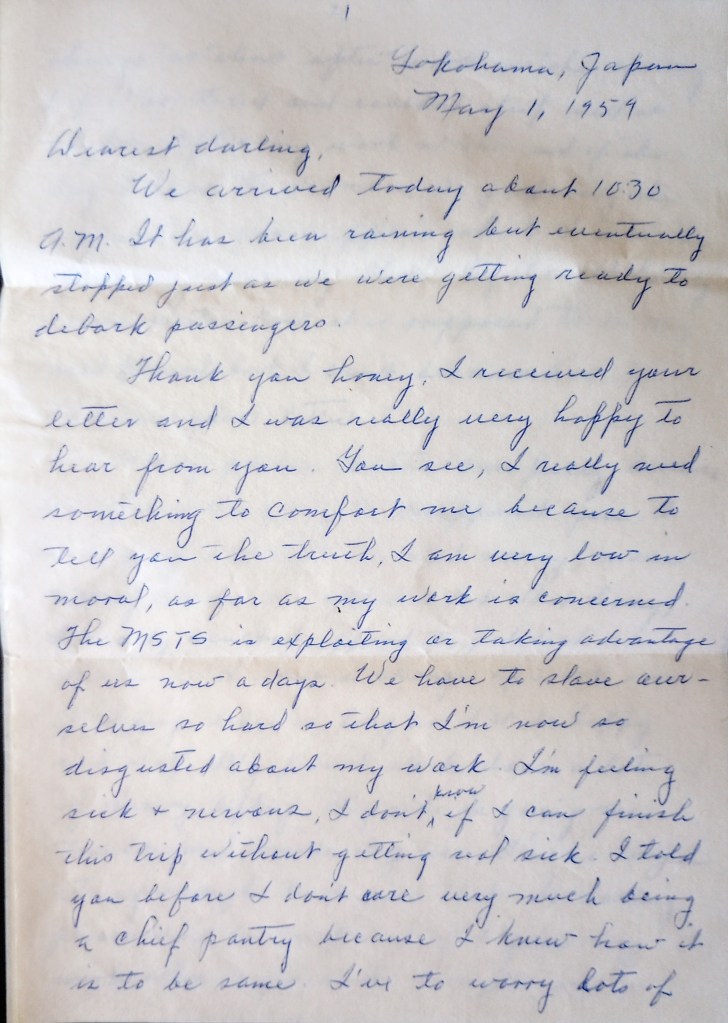 1
Yokohama, Japan
May 1, 1959
Dearest darling,
We arrived today about 10:30
A.M. It has been raining but eventually
stopped just as we were getting ready to
debark passengers.
Thank you honey, I received your
letter and I was really very happy to
hear from you. You see, I really need
something to comfort me because to
tell you the truth, I am very low in
moral, as far as my work is concerned.
The MSTS is exploiting or taking advantage
of us now a days. We have to slave our-
selves so hard so that I'm now so
disgusted about my work. I'm feeling
sick + nervous, I don't know if I can finish
this trip without getting real sick. I told
you before I don't care very much being
a chief pantry because I knew how it
is to be same. I've to worry lots of